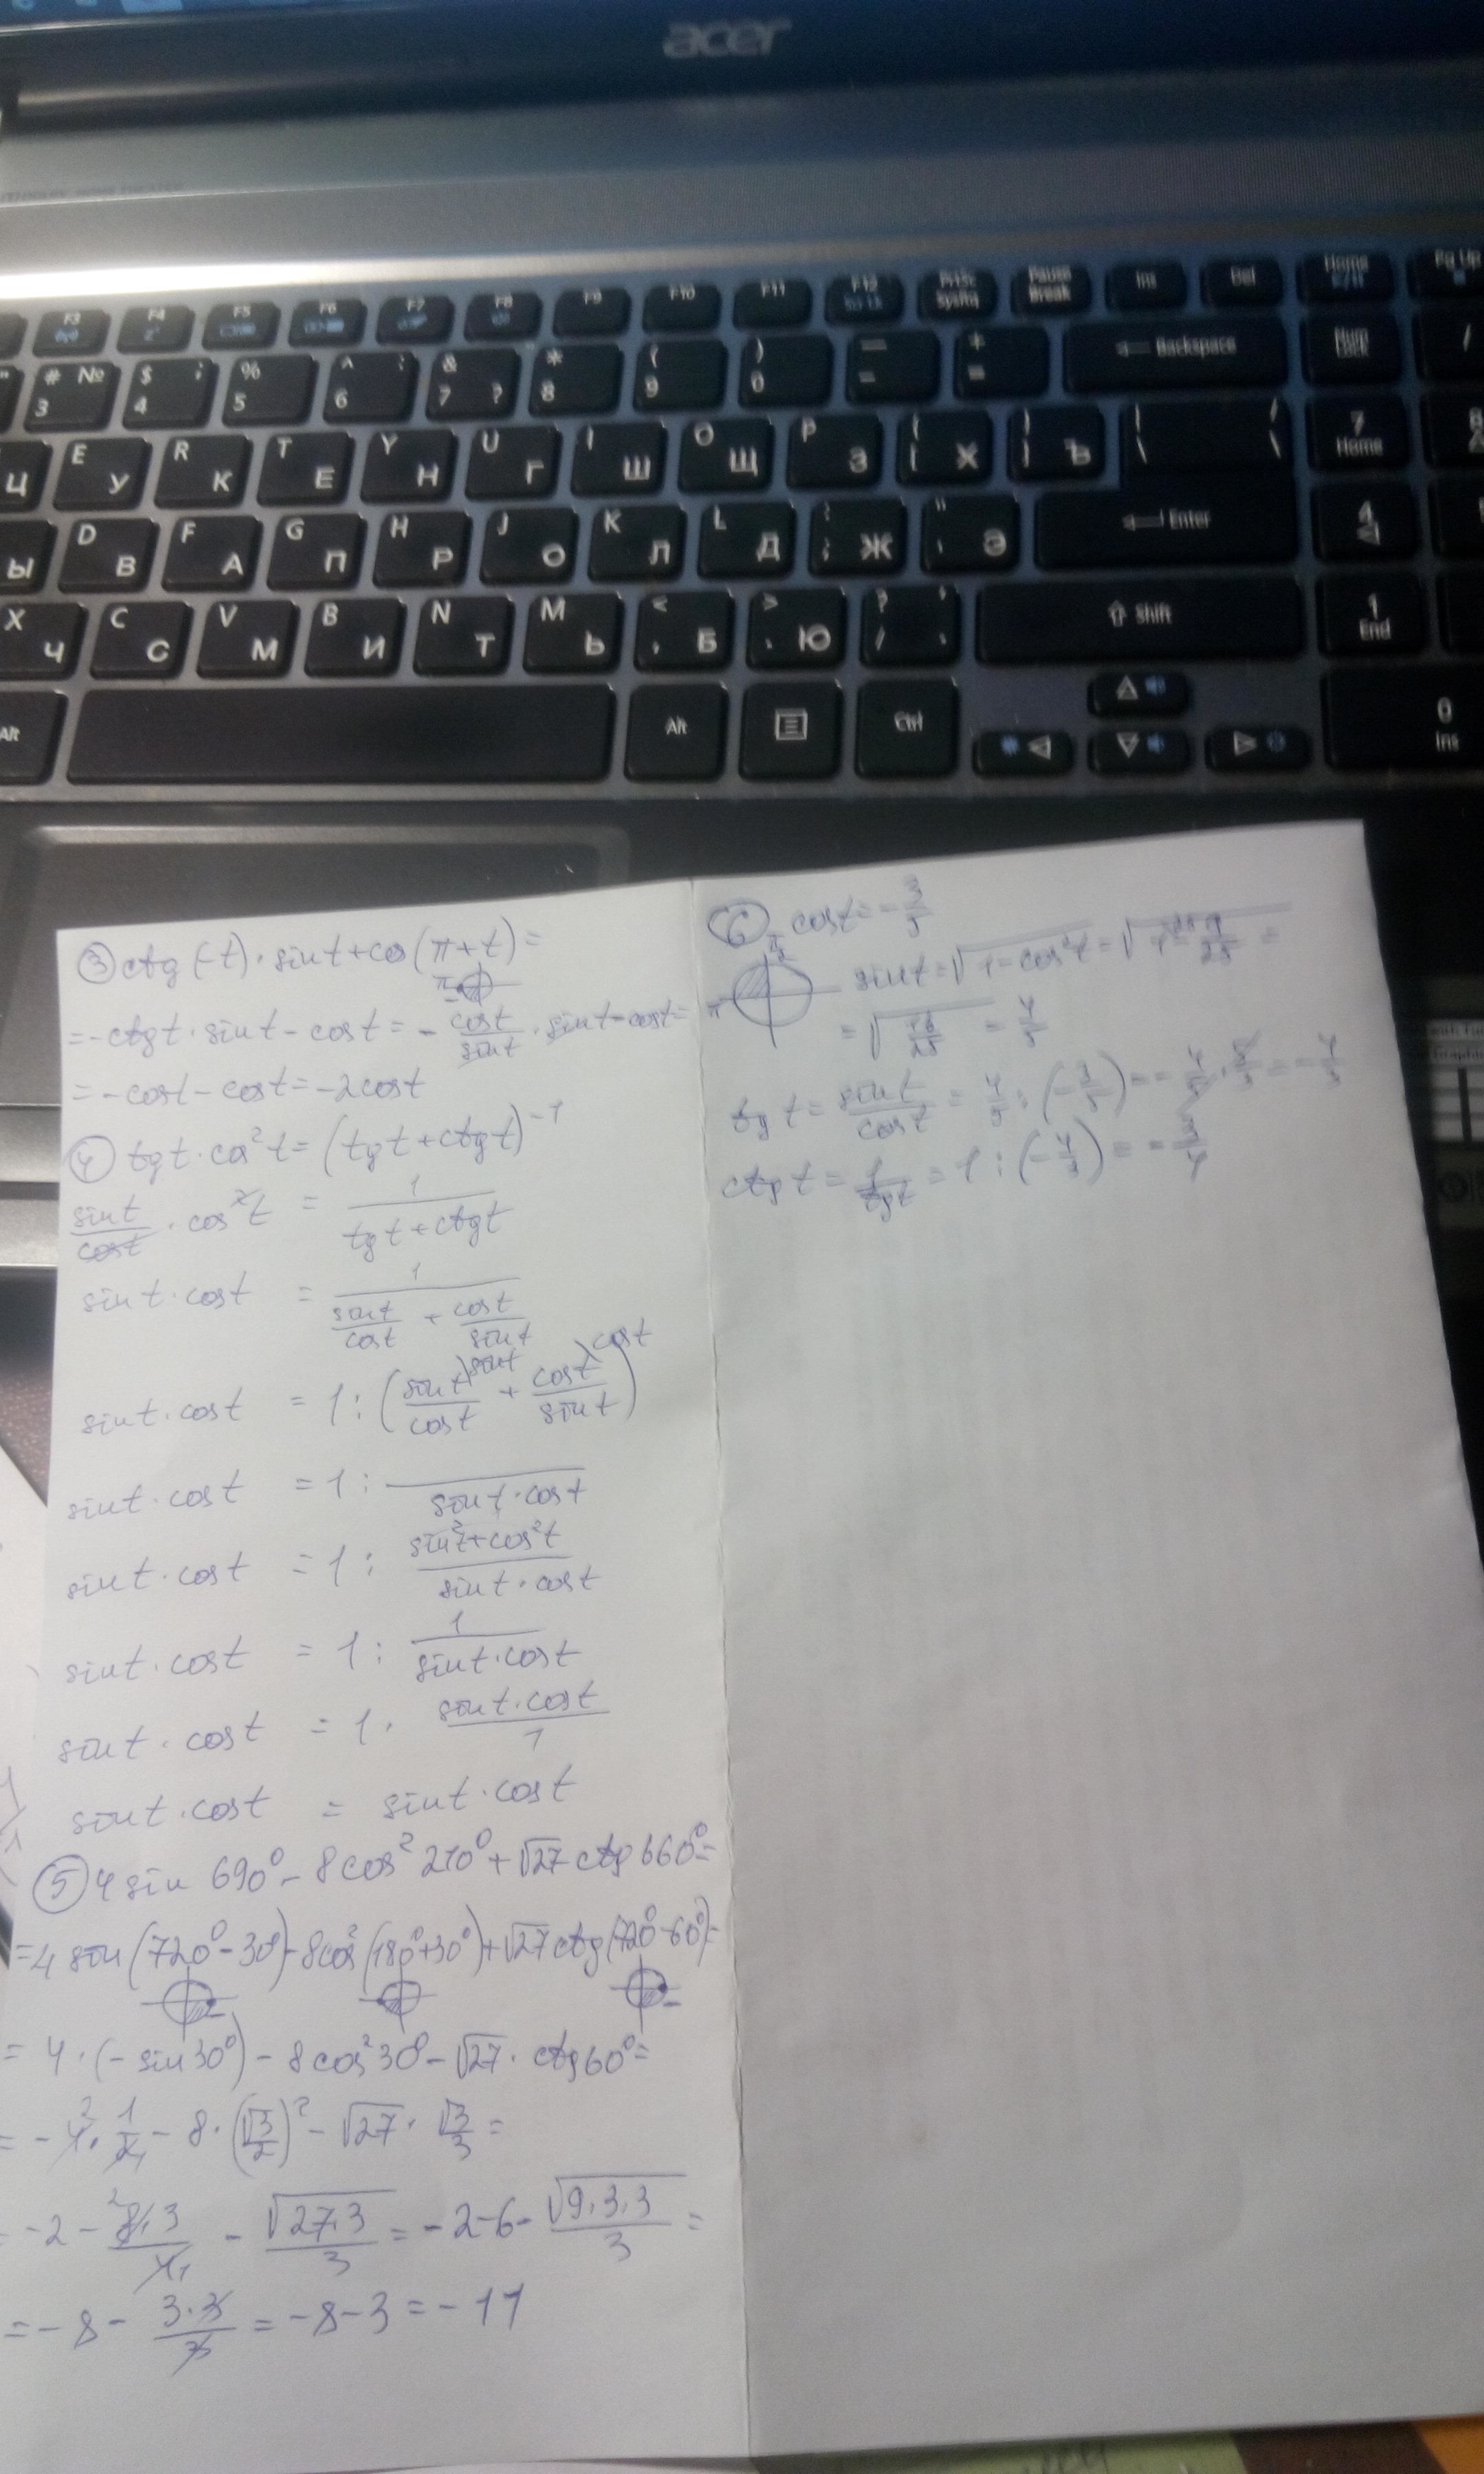 acer
F3 F4 F5 F6 F7 F8 F9 F10 F11 F12 PrtSc SysRq Pause Break Ins Del Home Pg Up
# № 3 $ ; 4 % 5 ^ : 6 & 7 ? * 8 ( 9 ) 0 — - + = Backspace Num Lock /
Ц E У R К T Е Y Н U Г I Ш O Щ P З { [ Х } ] Ъ | \ / \ 7 Home
Ы D В F А G П H Р J О K Л L Д : ; Ж " ' Э Enter 4
X Ч C С V М B И N Т M Ь < , Б > . Ю ? / , . Shift 1 End
Alt Alt Ctrl 0 Ins
③ ctg(-t)·sint+cos(π+t)=
=-ctgt·sint-cost=-cost/sint·sint-cost=
=-cost-cost=-2cost
④ tgt·cos²t=(tgt+ctgt)⁻¹
sint/cost·cos²t = 1/(tgt+ctgt)
sint·cost = 1/(sint/cost + cost/sint)
sint·cost = 1:(sint/cost^)sint + cost/sint^)cost)
sint·cost = 1: —/(sint·cost)
sint·cost = 1: (sin²t+cos²t)/(sint·cost)
sint·cost = 1: 1/(sint·cost)
sint·cost = 1· (sint·cost)/1
sint·cost = sint·cost
⑤ 4sin 690°-8cos²210°+√27 ctg660°=
=4sin(720°-30°)-8cos²(180°+30°)+√27ctg(720°-60°)=
=4·(-sin30°)-8cos²30°-√27·ctg60°=
=-4·1/2-8·(√3/2)²-√27·√3/3=
=-2-8·3/4-√27·3/3=-2-6-√9·3·3/3=
=-8-3·3/3=-8-3=-11
⑥ cost=-3/5
π/2
π
sint=√1-cos²t=√1-9/25=
=√16/25=4/5
tgt=sint/cost=4/5:(-3/5)=-4/5·5/3=-4/3
ctgt=1/tgt=1:(-4/3)=-3/4